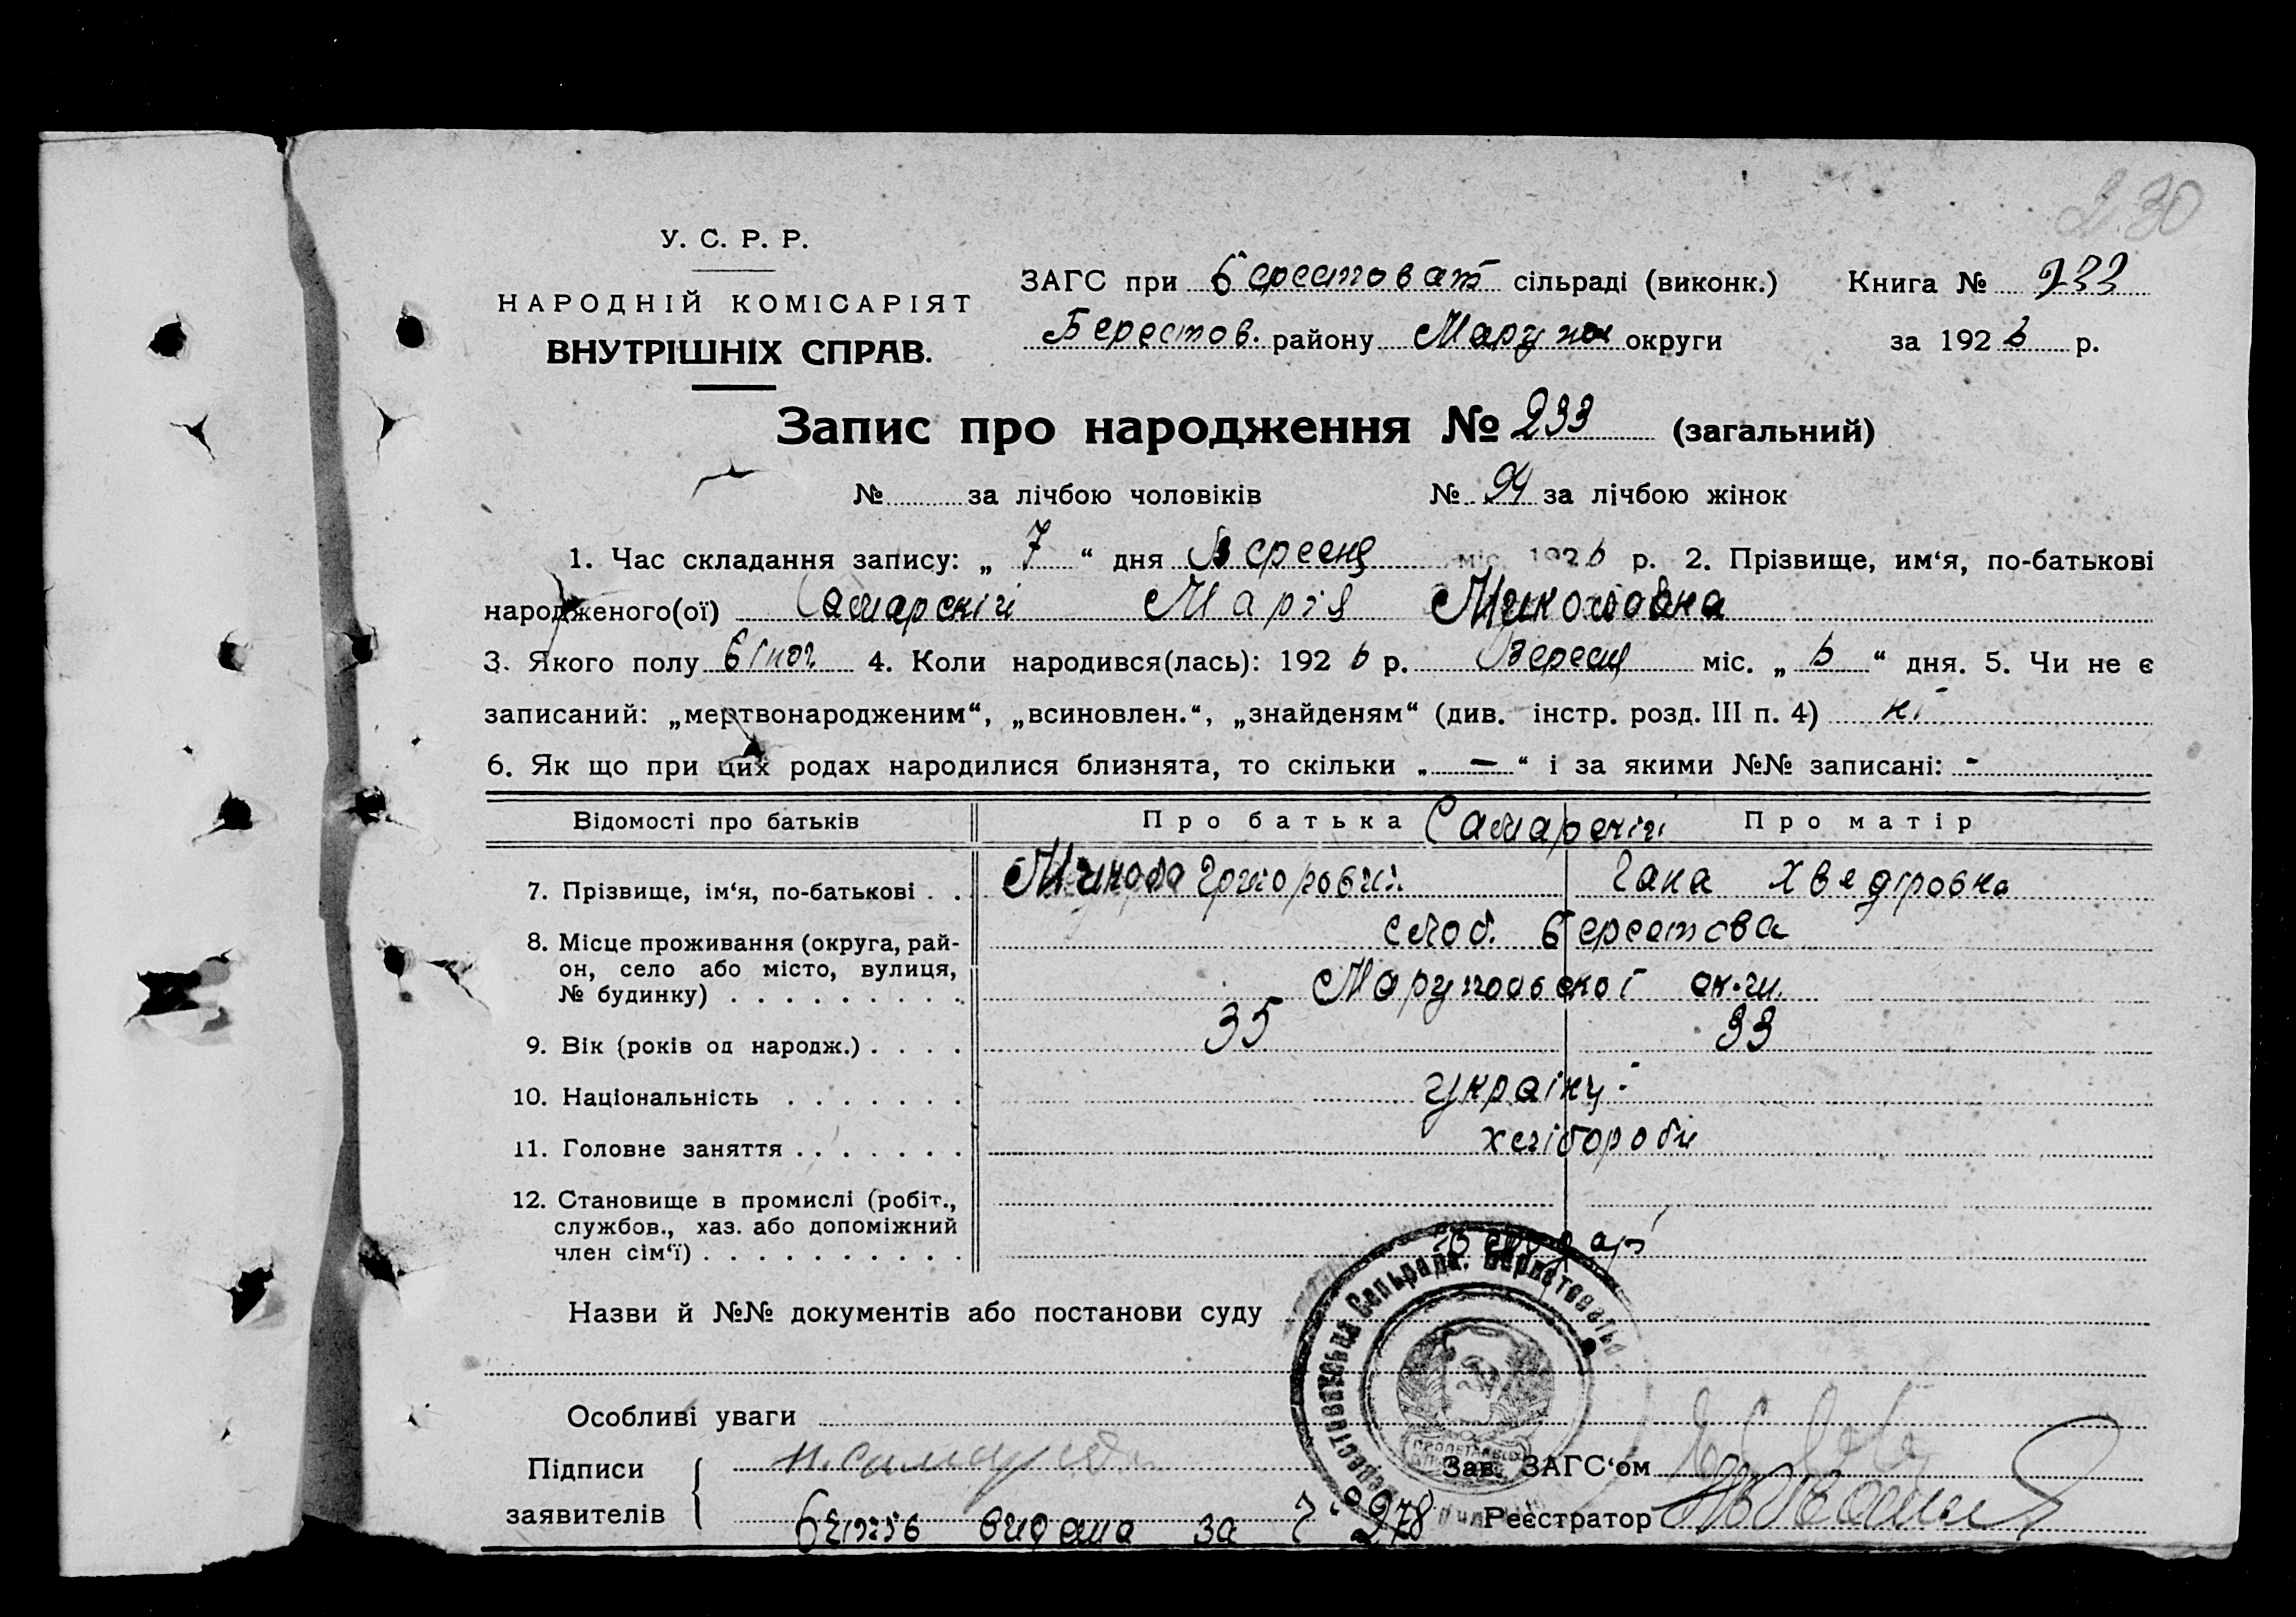 230
У. С. Р. Р.
НАРОДНІЙ КОМІСАРІЯТ
ВНУТРІШНІХ СПРАВ.
ЗАГС при Берестоват сільраді (виконк.) Книга № 233
Берестов. району Маруп округи за 1926 р.
Запис про народження № 233 (загальний)
№ за лічбою чоловіків № 94 за лічбою жінок
1. Час складання запису: „ 7 “ дня Вересня міс. 1926 р. 2. Прізвище, им‘я, по-батькові
народженого(ої) Самарскій Марія Миколовна
3. Якого полу жіноч 4. Коли народився(лась): 1926 р. Вересня міс. „ 6 “ дня. 5. Чи не є
записаний: „мертвонародженим“, „всиновлен.“, „знайденям“ (див. інстр. розд. III п. 4) ні
6. Як що при цих родах народилися близнята, то скільки „ — “ і за якими №№ записані: -
Відомості про батьків Про батька Самарскій Про матір
7. Прізвище, ім‘я, по-батькові . . Микола Григорович Гана Хведіровна
8. Місце проживання (округа, рай- слоб. Берестова
он, село або місто, вулиця, Марупольської окр.
№ будинку) . . . . . . . . .
9. Вік (років од народж.) . . . . 35 33
10. Національність . . . . . . . украінці
11. Головне заняття . . . . . . . хлібороби
12. Становище в промислі (робіт.,
службов., хаз. або допоміжний
член сім‘ї) . . . . . . . . . . . господар
Назви й №№ документів або постанови суду
Берестоватська Сельрада.
Особливі уваги
Підписи Зав. ЗАГС‘ом
заявителів видана за № 278 Реєстратор